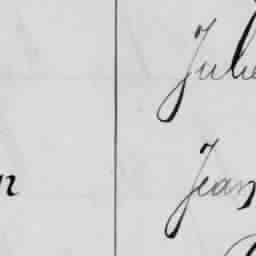 Julie
Jean